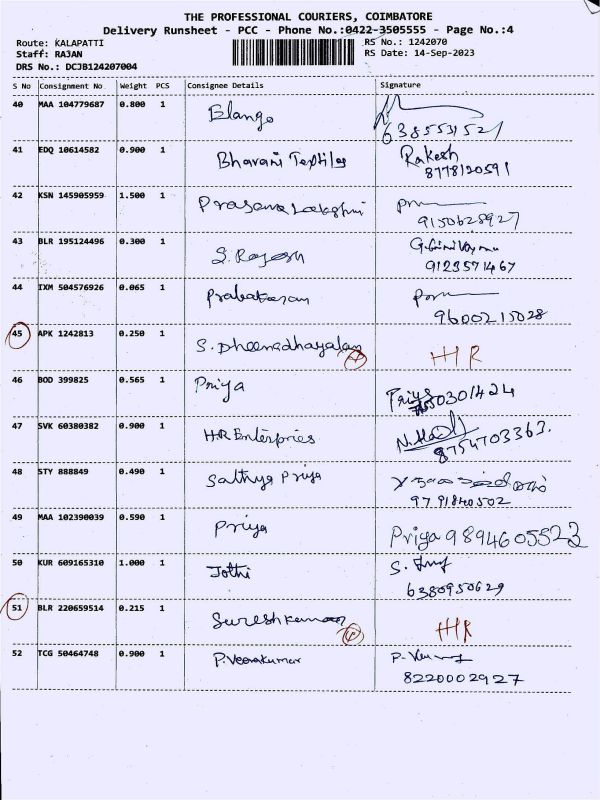 THE PROFESSIONAL COURIERS, COIMBATORE
Delivery Runsheet - PCC - Phone No.:0422-3505555 - Page No.:4
Route: KALAPATTI RS No.: 1242070
Staff: RAJAN RS Date: 14-Sep-2023
DRS No.: DCJB124207004
S No Consignment No Weight PCS Consignee Details Signature
40 MAA 104779687 0.800 1 Elango
6385531521
41 EDQ 10614582 0.900 1 Bhavani Textiles Rakesh
8778120591
42 KSN 145905959 1.500 1 Prasana Lakshmi
9150628927
43 BLR 195124496 0.300 1 S. Rajesh
9123571467
44 IXM 504576926 0.065 1 Prabakaran
9600215028
45 APK 1242813 0.250 1 S. Dheenadhayalan
46 BOD 399825 0.565 1 Priya Priya
47 SVK 60380382 0.900 1 H.R Enterpries
8754703363.
48 STY 888849 0.490 1 Sathya Priya
9791840502
49 MAA 102390039 0.590 1 Priya Priya 9894605523
50 KUR 609165310 1.000 1 Jothi S.
6380950629
51 BLR 220659514 0.215 1 Sureshkumar
52 TCG 50464748 0.900 1 P. Veerakumar
8220002927